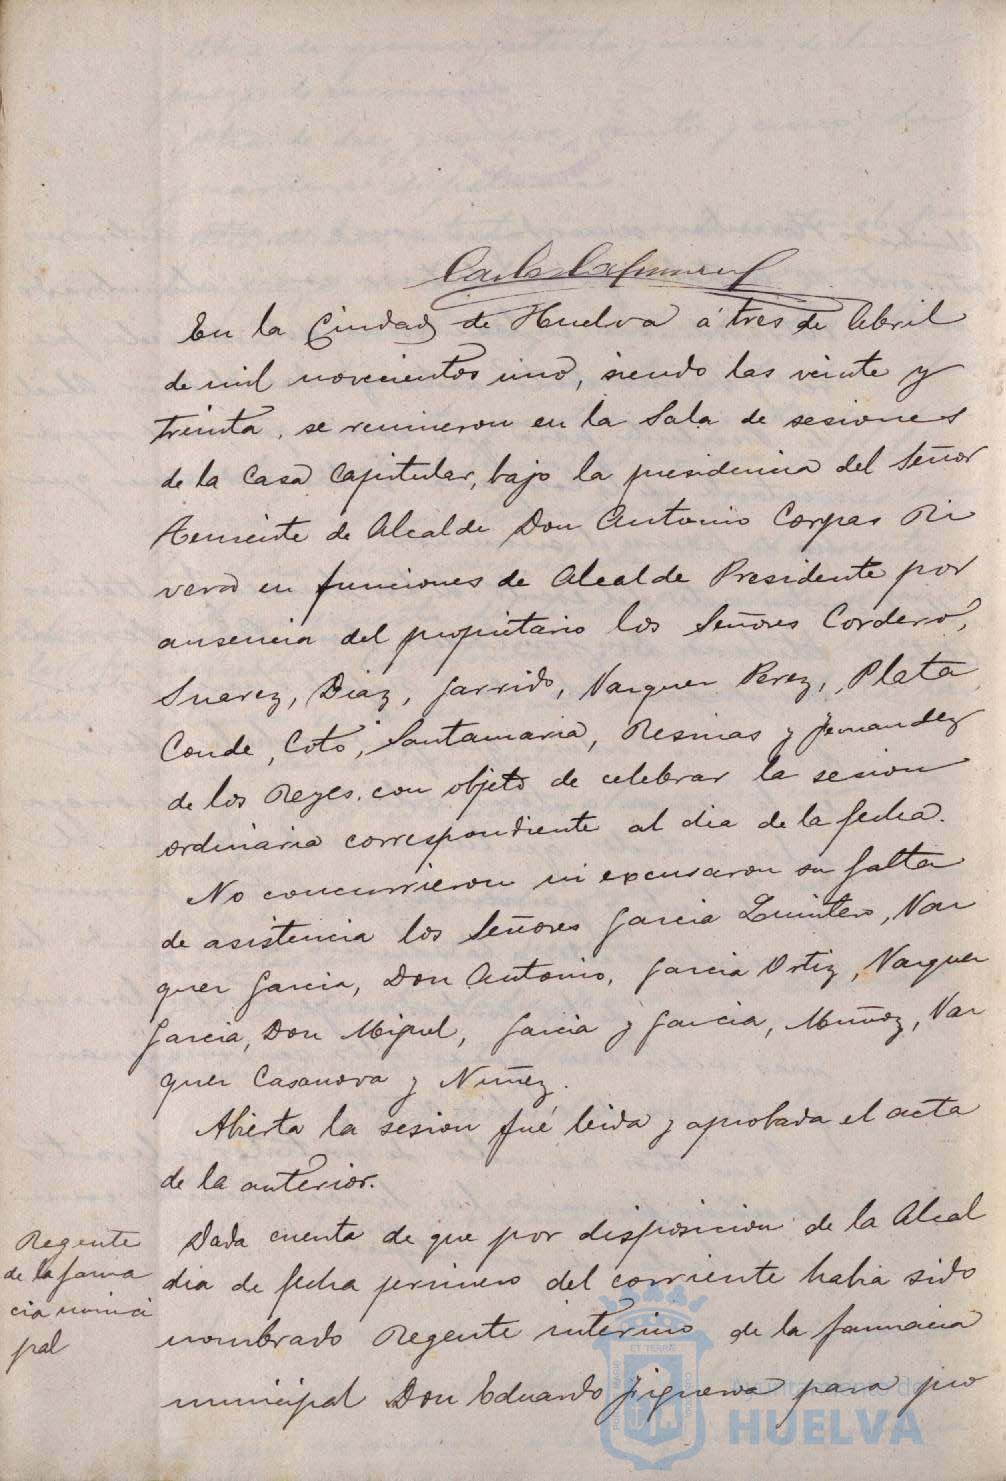 En la Ciudad de Huelva á tres de Abril
de mil novecientos uno, siendo las veinte y
treinta, se reunieron en la Sala de sesiones
de la Casa Capitular, bajo la presidencia del Señor
Teniente de Alcalde Don Antonio Corpas Ri
vera en funciones de Alcalde Presidente por
ausencia del propietario los Señores Cordero,
Suarez, Diaz, Garrido, Vazquez Perez, Plata,
Conde, Coto, Santamaria, Resinas y Fernandez
de los Reyes, con objeto de celebrar la sesion
ordinaria correspondiente al dia de la fecha.
No concurrieron ni excusaron su falta
de asistencia los Señores Garcia Quintero, Vaz
quez Garcia, Don Antonio, Garcia Ortiz, Vazquez
Garcia, Don Miguel, Garcia y Garcia, Muñoz, Vaz
quez Casanova y Nuñez.
Abierta la sesion fué leida y aprobada el acta
de la anterior.
Regente
de la farma
cia munici
pal
Dada cuenta de que por disposicion de la Alcal
dia de fecha primero del corriente habia sido
nombrado Regente interino de la farmacia
municipal Don Eduardo Figueroa para pro
Ayuntamiento de
HUELVA